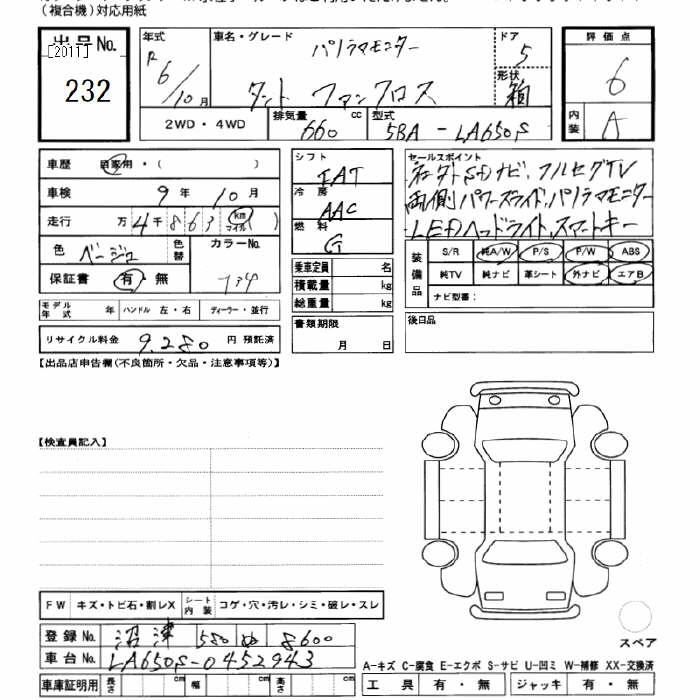 （複合機）対応用紙
出品No.
[2011]
232
年式
R6/10月
車名・グレード
パノラマモニター
タント ファンクロス
ドア
5
形状
箱
評価点
6
内装
A
2WD・4WD
排気量
660 cc
型式
5BA-LA650S
車歴 自家用・( )
車検 9年10月
走行 万4千863 km マイル ( )
色 ベージュ
色替
カラーNo.
T34
保証書 有・無
シフト
IAT
冷房
AAC
燃料
G
乗車定員 名
積載量 kg
総重量 kg
書類期限
月 日
セールスポイント
SDナビ、フルセグTV
両側パワースライド、パノラマモニター
LEDヘッドライト、スマートキー
装備品
S/R 純A/W P/S P/W ABS
純TV 純ナビ 革シート 外ナビ エアB
ナビ型番：
後日品
モデル年式 年 ハンドル 左・右 ディーラー・並行
リサイクル料金 9,280 円 預託済
【出品店申告欄(不良箇所・欠品・注意事項等)】
【検査員記入】
FW キズ・トビ石・割レX シート内装 コゲ・穴・汚レ・シミ・破レ・スレ
登録No. 沼津 580 ぬ 8600
車台No. LA650S-0452943
車庫証明用 長さ cm 幅 cm 高さ cm
スペア
A-キズ C-腐食 E-エクボ S-サビ U-凹ミ W-補修 XX-交換済
工具 有・無 ジャッキ 有・無